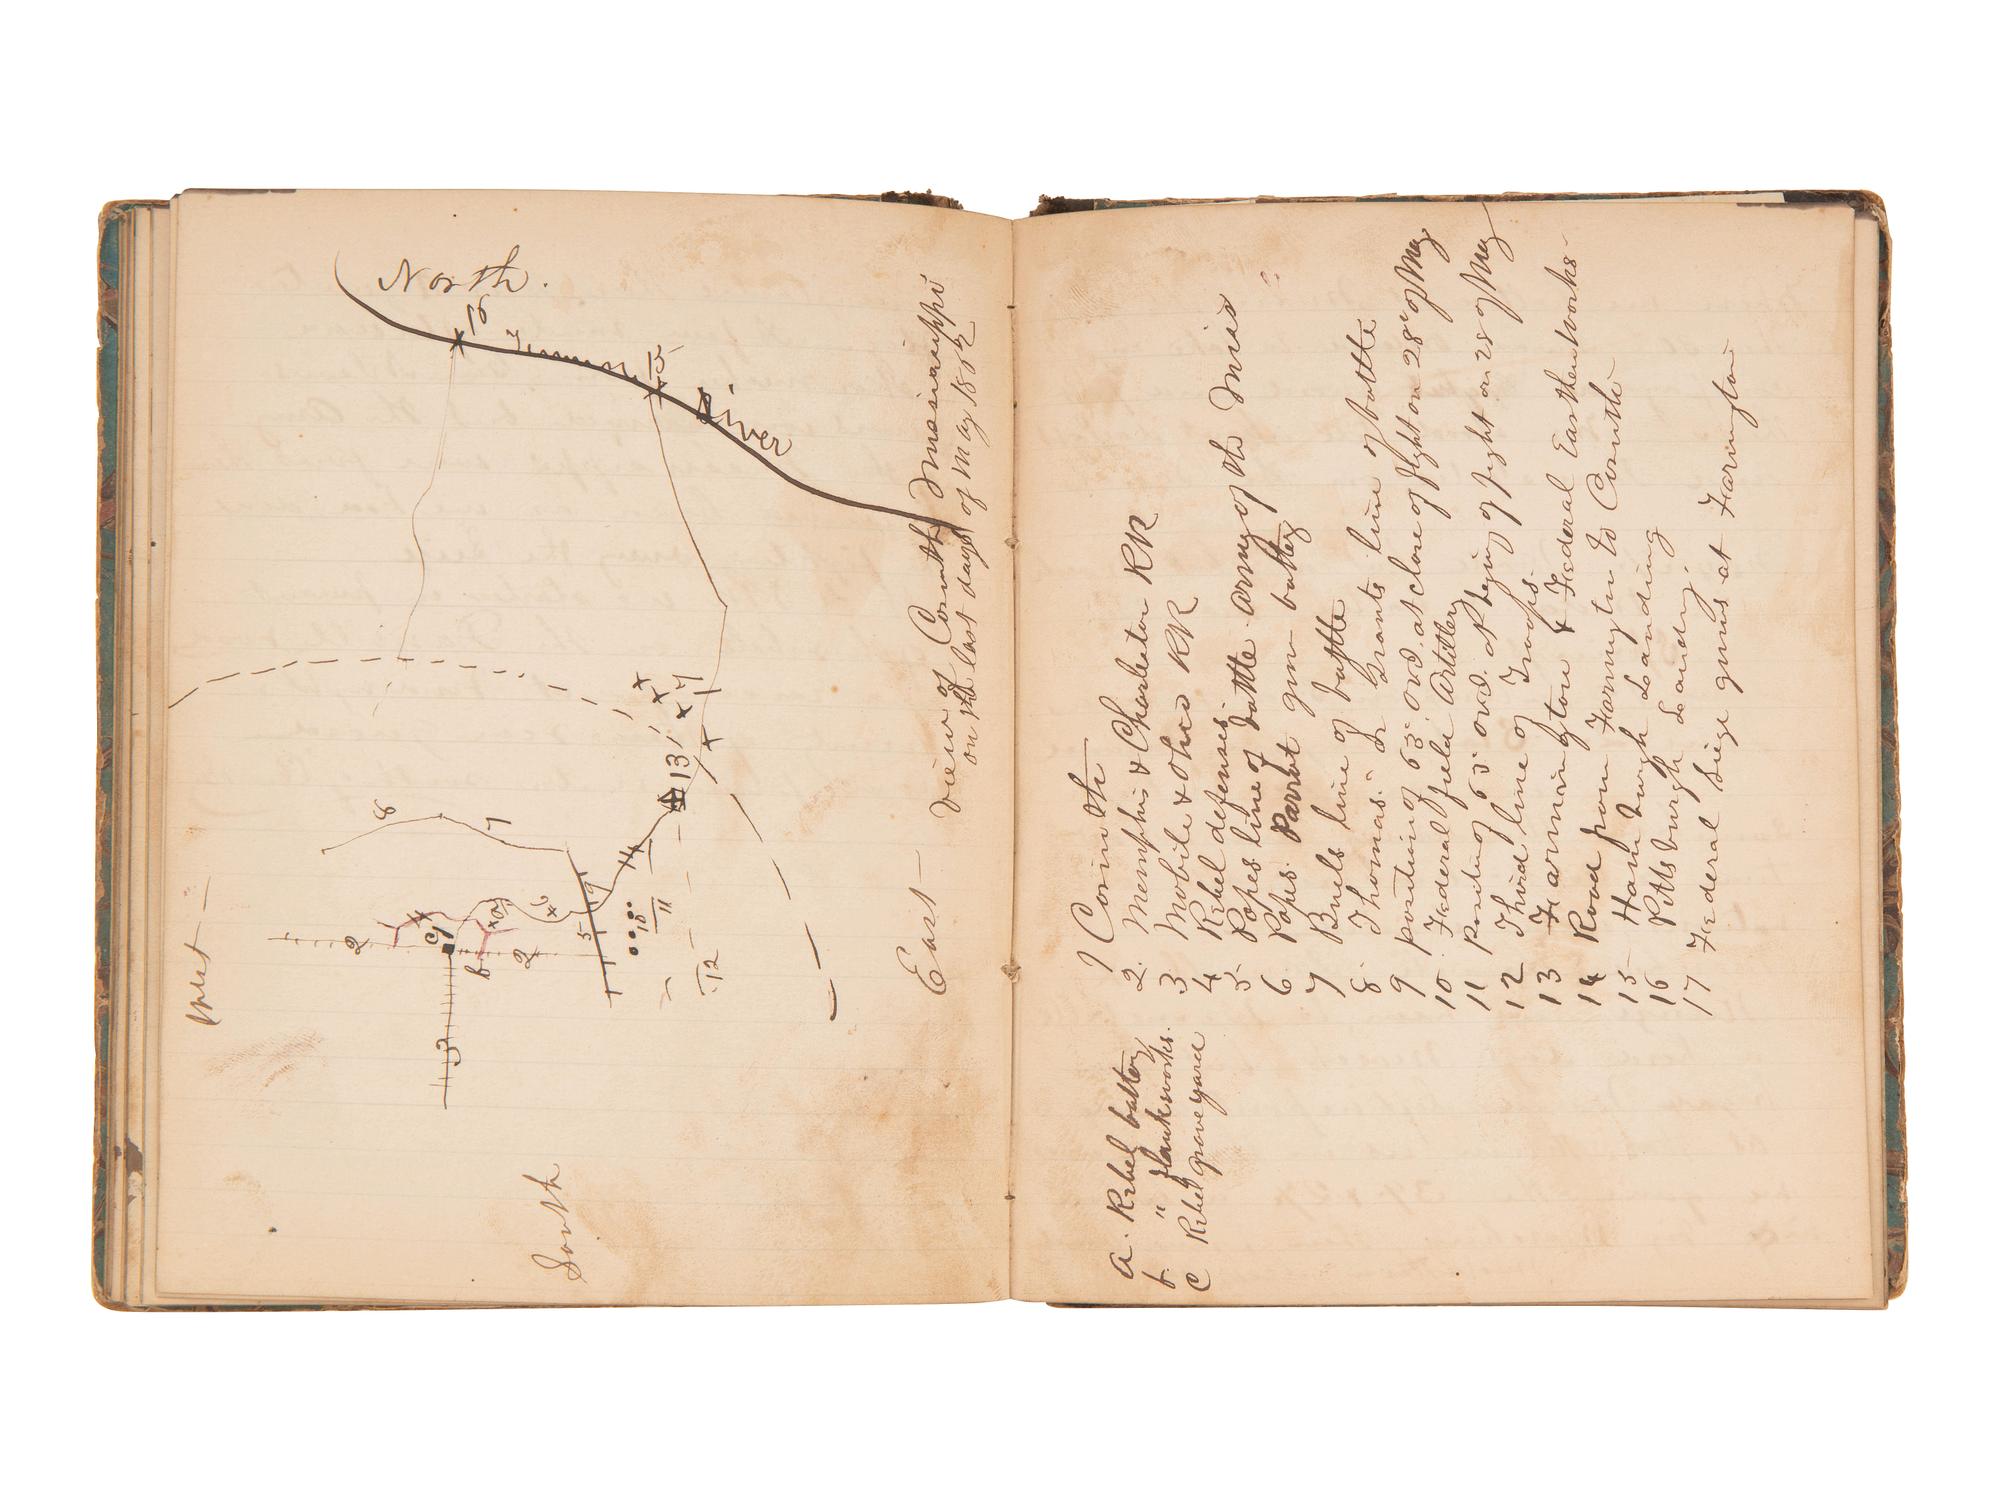 North.
16
Tennessee
15
River
West
South
East
8
7
2
4
c
1
a
b
2
6
3
5
9
10
11
12
14
13
17
View of Corinth Mississippi
on the last days of May 1862
1 Corinth
2. Memphis & Charleston RR
3 Mobile & Ohio RR
4 Rebel defenses.
5 Popes line of battle army of the Miss
6 Popes Parrot gun battery
7 Buels line of battle
8 Thomas. & Grants line of battle
9 position of 63d. OVI. at close of fight on 28" of May
10. Federal field Artillery
11 position of 63d. OVI. at begin of fight on 28 of May
12 Third line of Troops.
13 Farmington & Federal Earthenworks
14 Road from Farmington to Corinth
15 Hamburgh Landing
16 Pittsburgh Landing.
17 Federal Siege guns at Farmington
a. Rebel battery
b. " flankworks.
c Rebel graveyard